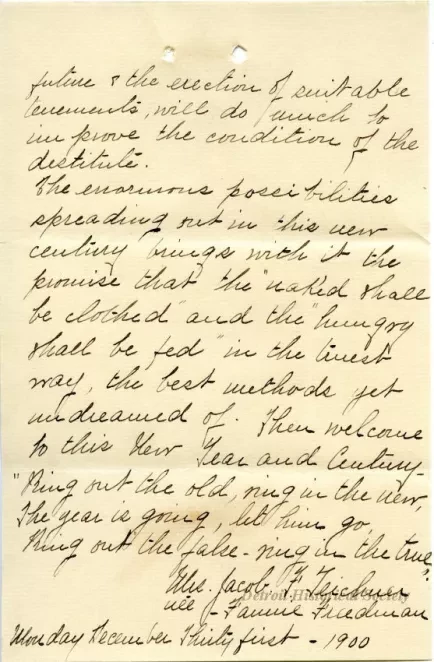 future & the erection of suitable
tenements, will do much to
improve the condition of the
destitute.
The enormous possibilities
spreading out in this new
century brings with it the
promise that the "naked shall
be clothed" and the "hungry
shall be fed" in the truest
way, the best methods yet
undreamed of. Then welcome
to this New Year and Century -
"Ring out the old, ring in the new,
The year is going, let him go,
Ring out the false - ring in the true".
Mrs. Jacob F Teichner
Detroit Historical Society
née - Fannie Freedman
Monday December Thirty first - 1900